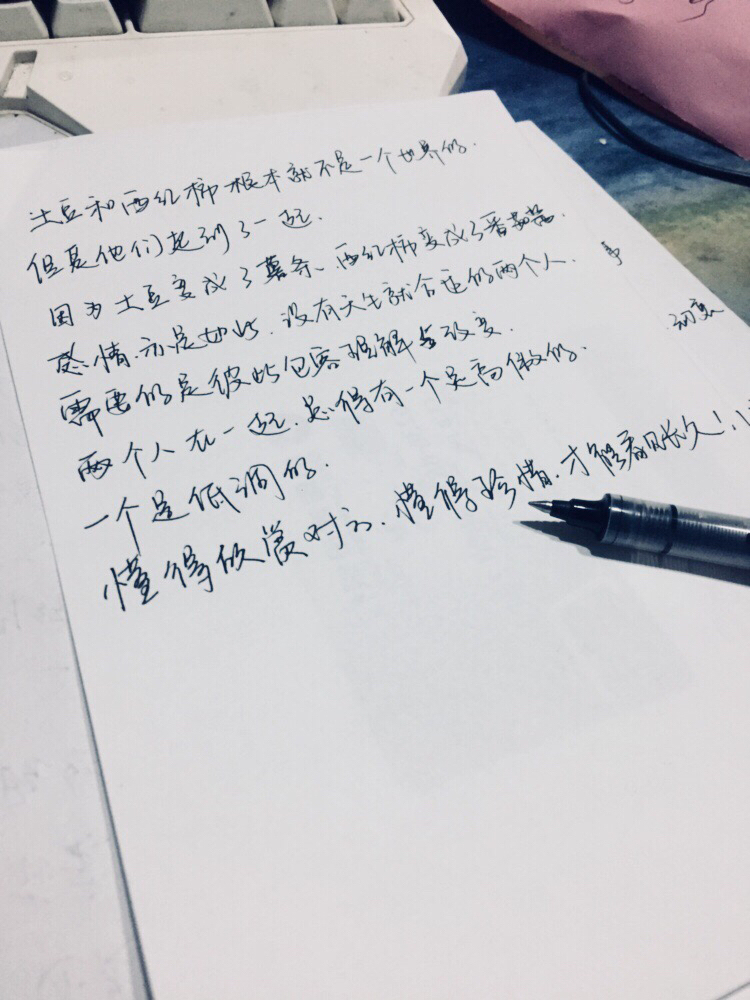 土豆和西红柿根本就不是一个世界的.
但是他们走到了一起.
因为土豆变成了薯条、西红柿变成了番茄酱.
感情.亦是如此.没有天生就合适的两个人.
需要的是彼此包容理解与改变.
两个人在一起.总得有一个是高傲的.
一个是低调的.
懂得欣赏对方.懂得珍惜.才能看见长久!